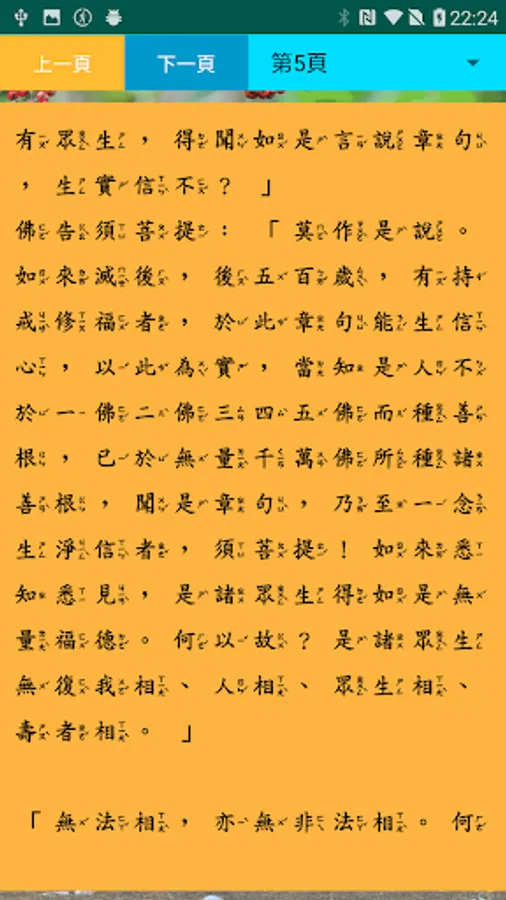 22:24
上一頁 下一頁 第5頁
有眾生，得聞如是言說章句
，生實信不？」
佛告須菩提：「莫作是說。
如來滅後，後五百歲，有持
戒修福者，於此章句能生信
心，以此為實，當知是人不
於一佛二佛三四五佛而種善
根，已於無量千萬佛所種諸
善根，聞是章句，乃至一念
生淨信者，須菩提！如來悉
知悉見，是諸眾生得如是無
量福德。何以故？是諸眾生
無復我相、人相、眾生相、
壽者相。」
「無法相，亦無非法相。何